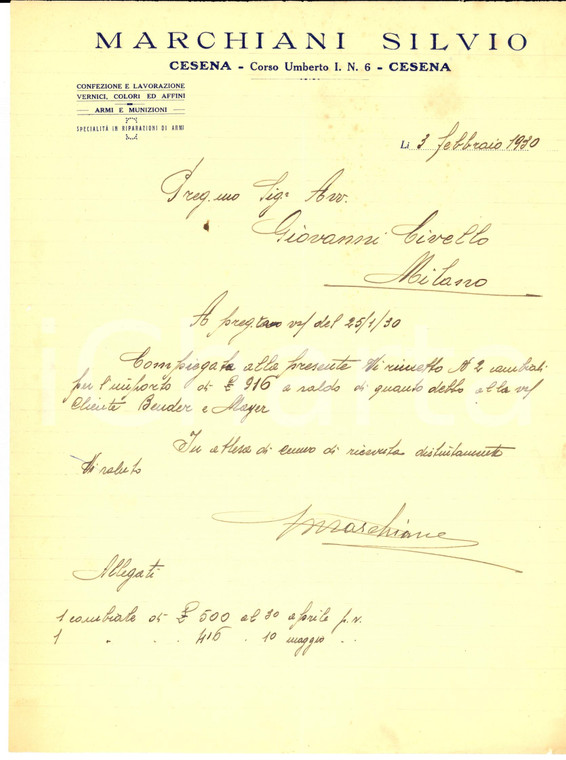 MARCHIANI SILVIO
CESENA - Corso Umberto I. N. 6 - CESENA
CONFEZIONE E LAVORAZIONE
VERNICI, COLORI ED AFFINI
ARMI E MUNIZIONI
SPECIALITÀ IN RIPARAZIONI DI ARMI
Li 3 febbraio 1930
Preg.mo Sig. Avv.
Giovanni Civello
Milano
A preg. vs/ del 25/1/30
Compiegata alla presente Vi rimetto N 2 cambiali
per l'importo di £ 916 a saldo di quanto debbo alla vs/
Cliente Bender e Mayer
In attesa di cenno di ricevuta distintamente
Vi saluto
Marchiani
Allegati
1 cambiale di £ 500 al 30 aprile p.v.
1 " . . 416 . 10 maggio . .